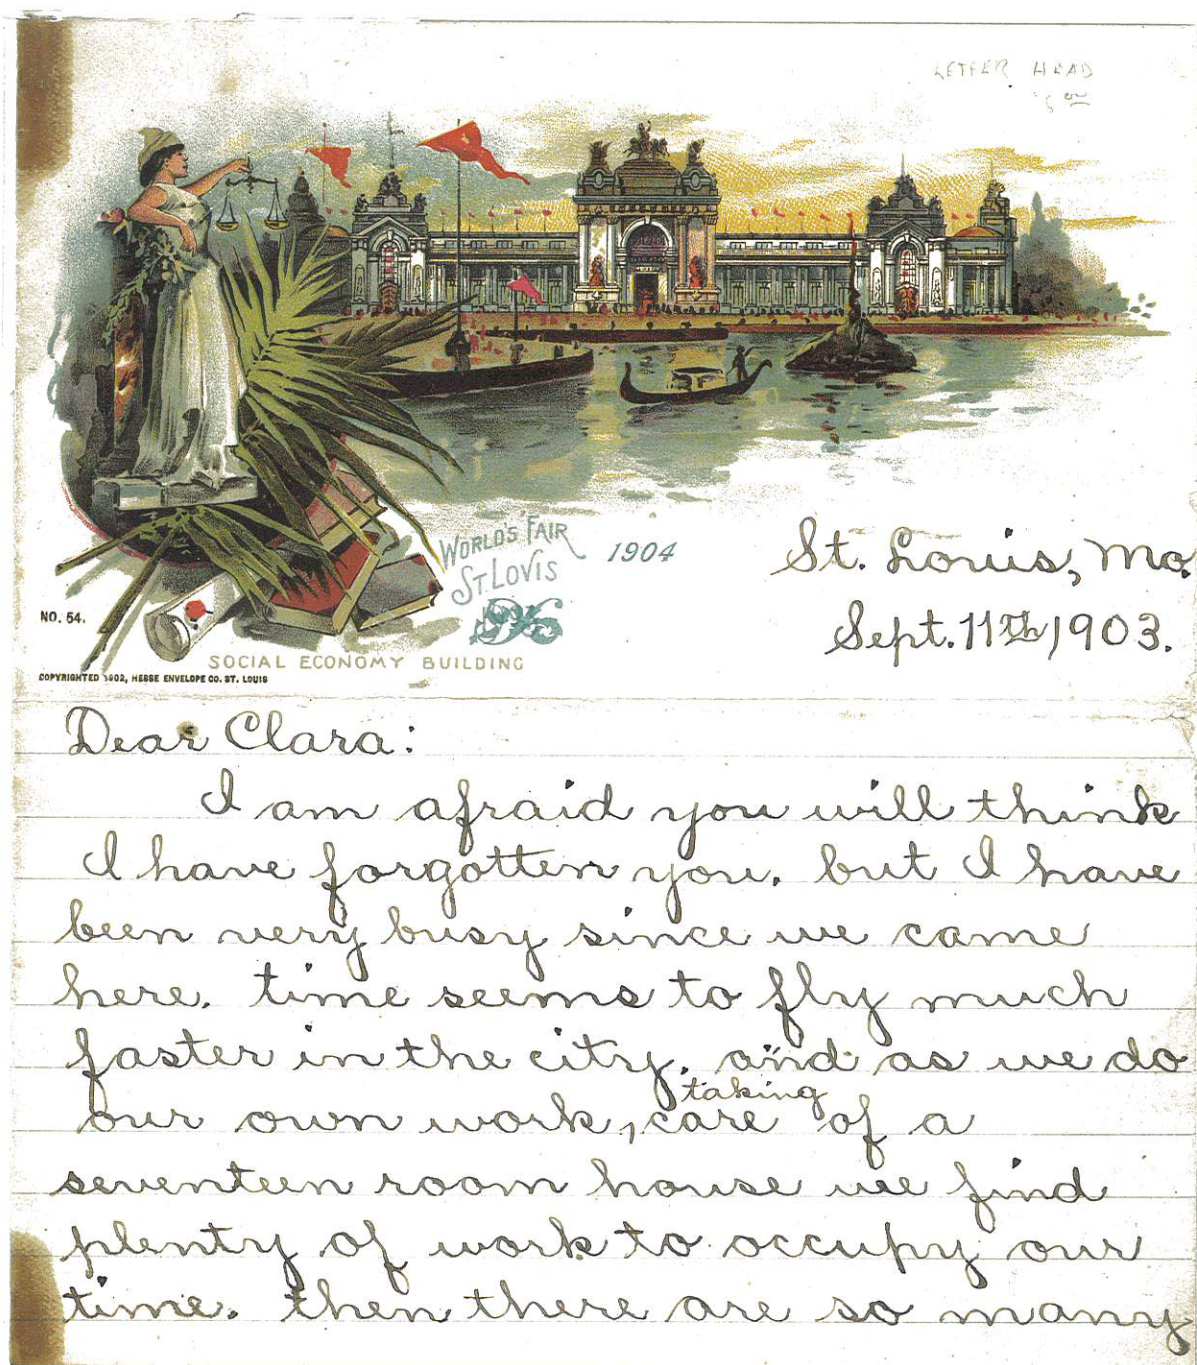 LETTER HEAD
WORLD'S FAIR
ST. LOVIS
1904
St. Louis, Mo.
Sept. 11th, 1903.
NO. 54.
SOCIAL ECONOMY BUILDING
COPYRIGHTED 1902, HESSE ENVELOPE CO. ST. LOUIS
Dear Clara:
I am afraid you will think
I have forgotten you, but I have
been very busy since we came
here. time seems to fly much
faster in the city, and as we do
taking
our own work, care of a
seventeen room house we find
plenty of work to occupy our
time. then there are so many